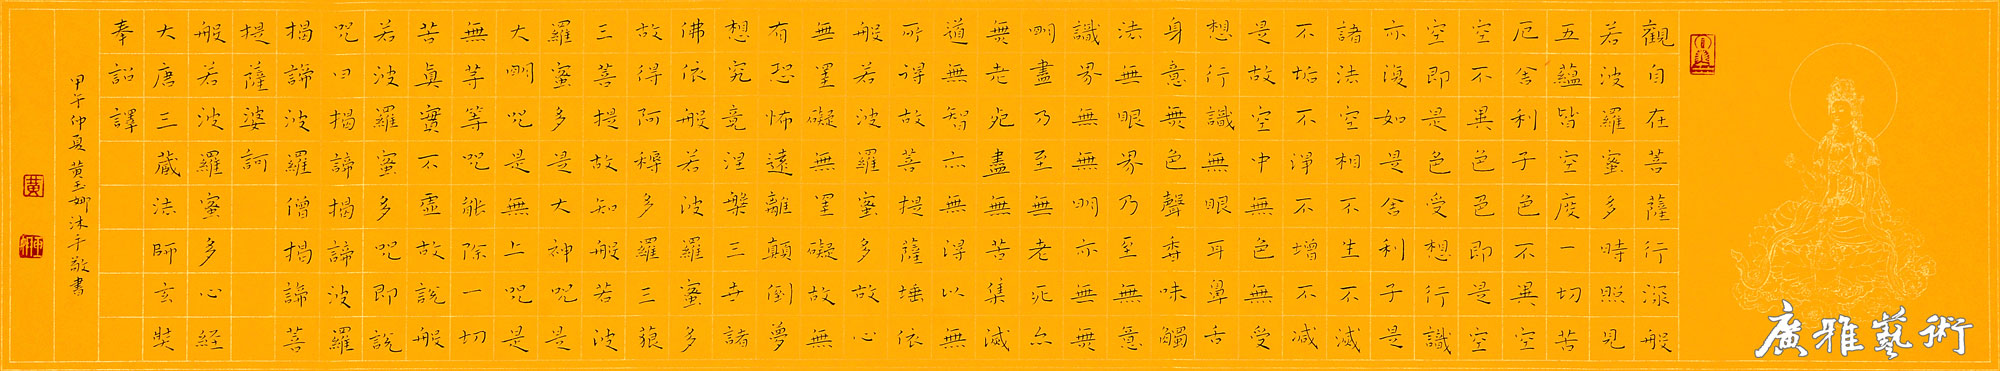 觀自在菩薩行深般
若波羅蜜多時照見
五蘊皆空度一切苦
厄舍利子色不異空
空不異色色即是空
空即是色受想行識
亦復如是舍利子是
諸法空相不生不滅
不垢不淨不增不減
是故空中無色無受
想行識無眼耳鼻舌
身意無色聲香味觸
法無眼界乃至無意
識界無無明亦無無
明盡乃至無老死亦
無老死盡無苦集滅
道無智亦無得以無
所得故菩提薩埵依
般若波羅蜜多故心
無罣礙無罣礙故無
有恐怖遠離顛倒夢
想究竟涅槃三世諸
佛依般若波羅蜜多
故得阿耨多羅三藐
三菩提故知般若波
羅蜜多是大神咒是
大明咒是無上咒是
無等等咒能除一切
苦真實不虛故說般
若波羅蜜多咒即說
咒曰揭諦揭諦波羅
揭諦波羅僧揭諦菩
提薩婆訶
般若波羅蜜多心経
大唐三藏法師玄奘
奉詔譯
甲午仲夏 黃玉娜沐手敬書
黃
廣雅藝術